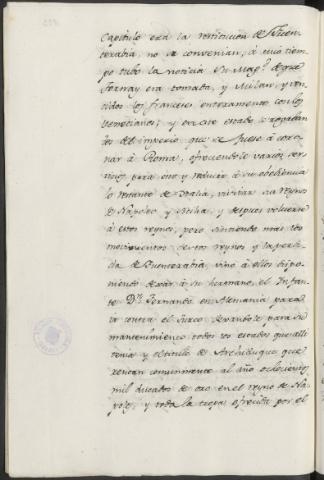 Capitulo era la restitucion de Fuen-
terabia, no se convenian, à cuio tiem-
po tubo la noticia Su Mag.d de que
Tornay era tomada, y Milan, y ven-
cidos los franceses enteramente con los
Venecianos; y en este estado le rogaban
los del imperio que se fuese à coro-
nar à Roma, ofreciendole varios ser-
vicios para ello y reducir à su obediencia
lo restante de Italia, visitar su Reynos
de Napoles y Sicilia, y despues volverse
à estos reynos, pero sintiendo mas los
movimientos destos reynos y la perdi-
da de Fuenterabia, vino à ellos dispo-
niendo dexar à su hermano el Infan-
te D.n Fernando en Alemania para
ir contra el Turco dexandole para su
mantenimiento todos los estados que alli
tenia y el titulo de Archiduque que
rentan comunmente al año ochocientos
mil ducados de oro en el reyno de Na-
poles, y toda la tropa ofrecida por el